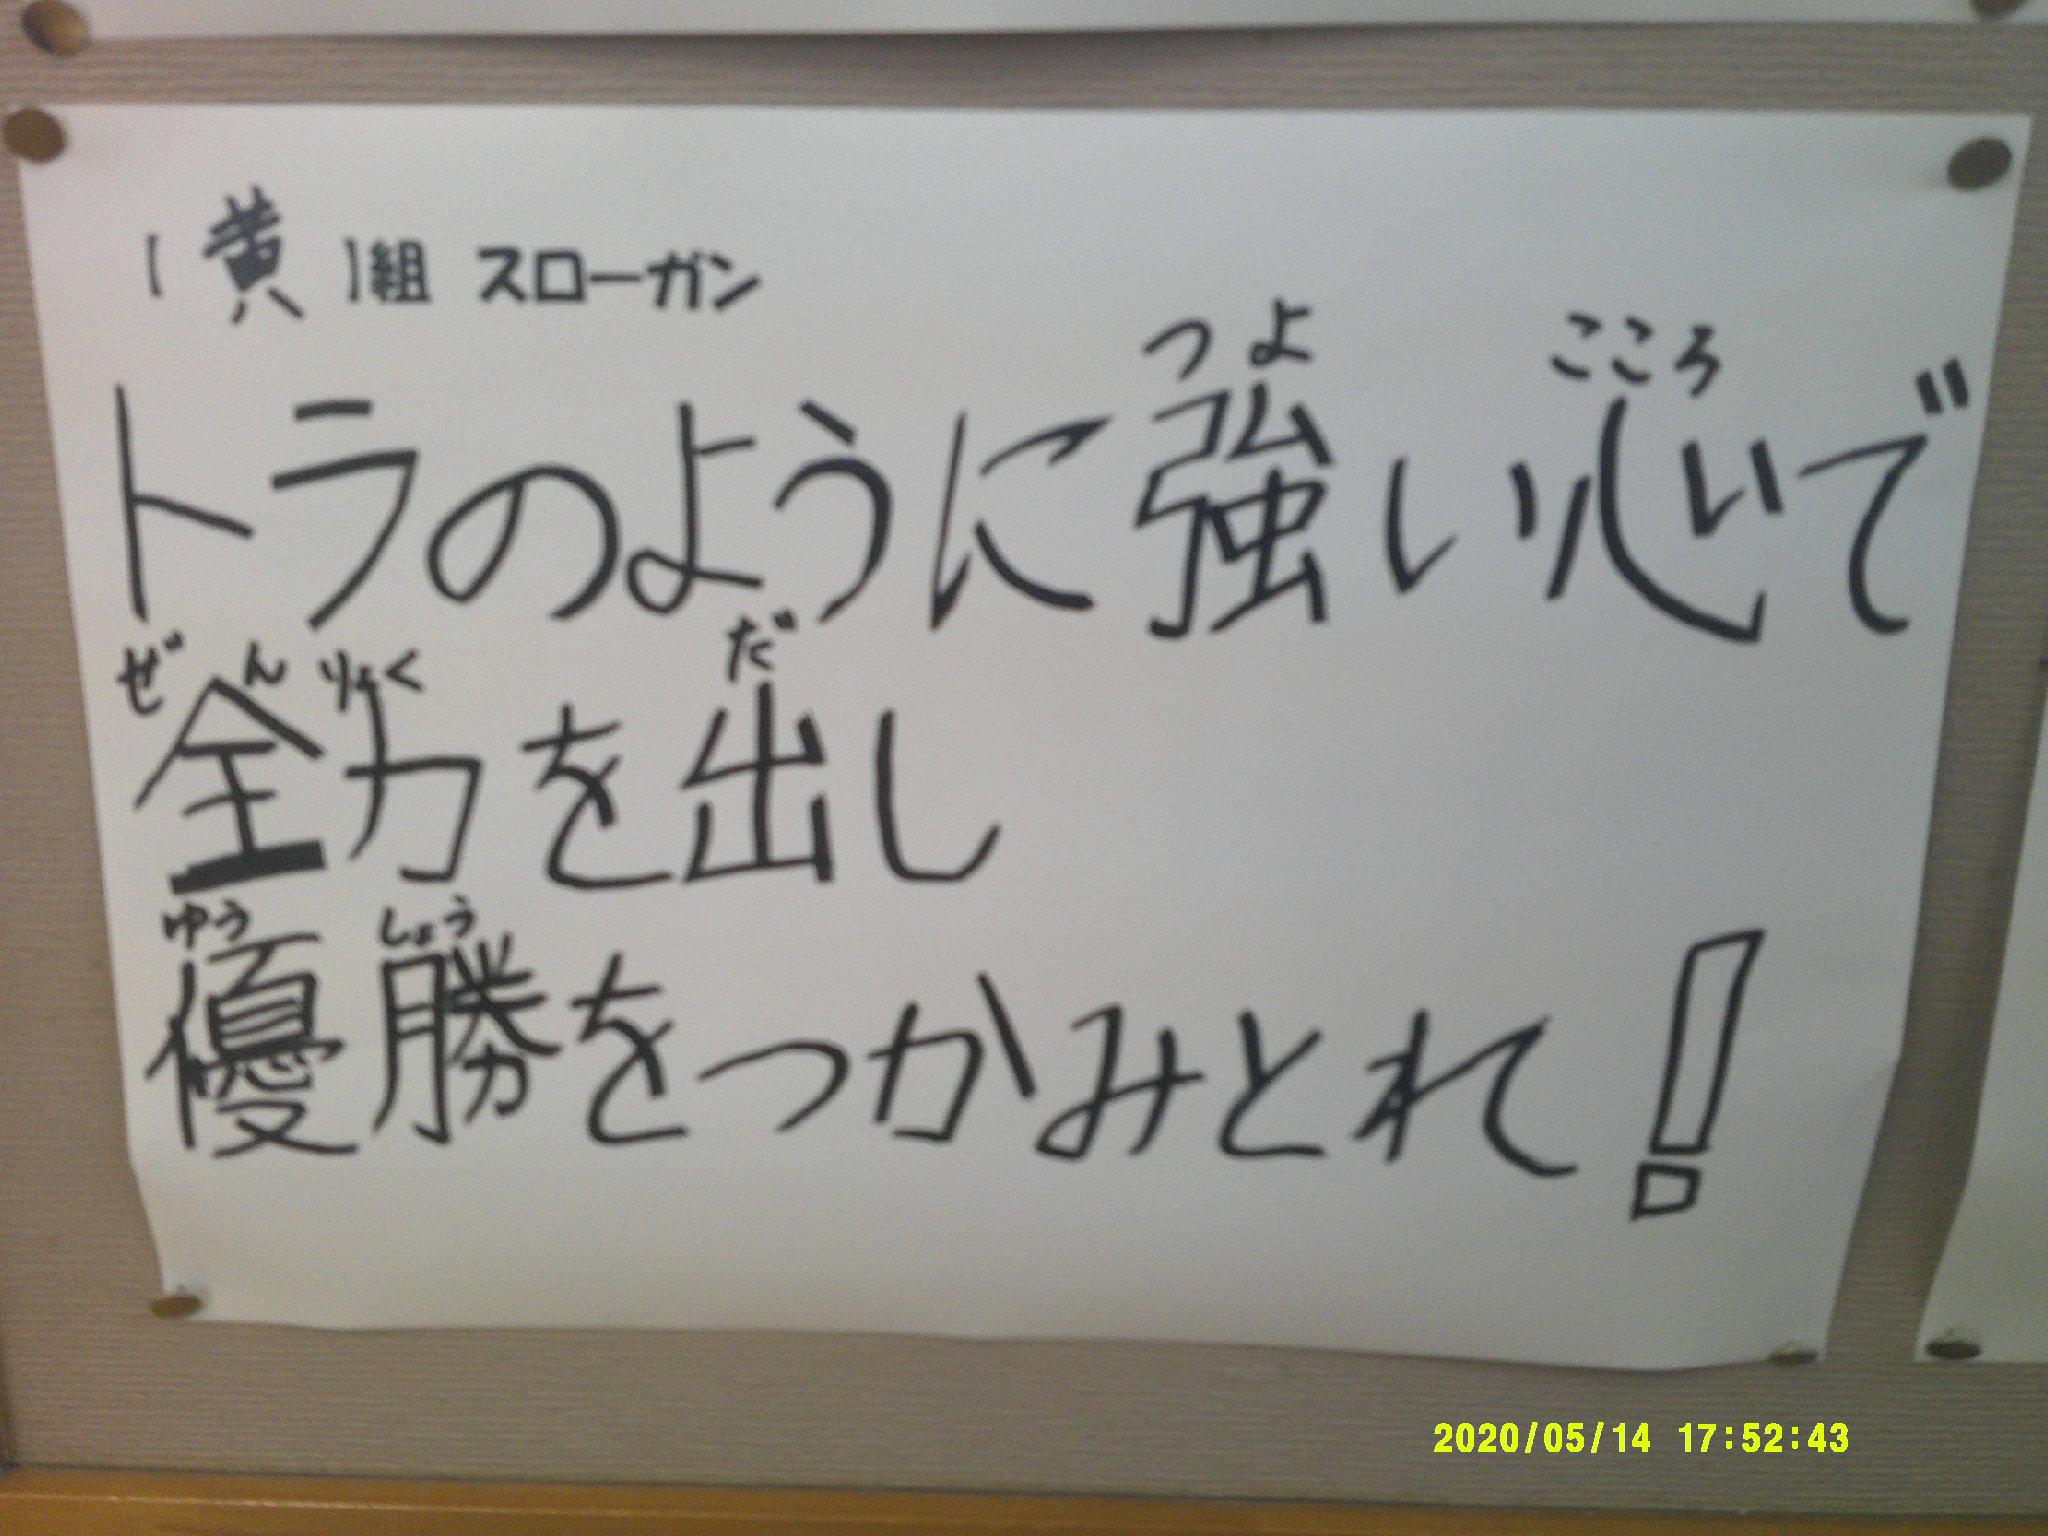 (黄)組 スローガン
つよ こころ
トラのように強い心で
ぜんりょく だ
全力を出し
ゆう しょう
優勝をつかみとれ!
2020/05/14 17:52:43